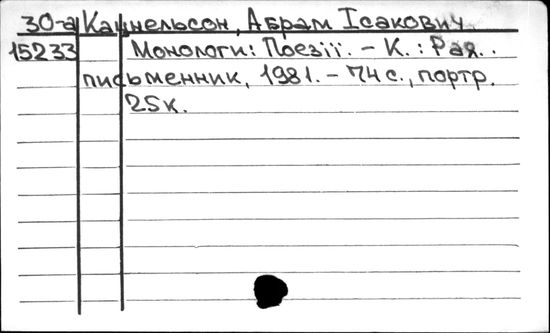 30-а Кацнельсон, Абрам Ісакович
15233 Монологи: Поезії. – К.: Рад.
письменник, 1981. – 74 с., портр.
25к.